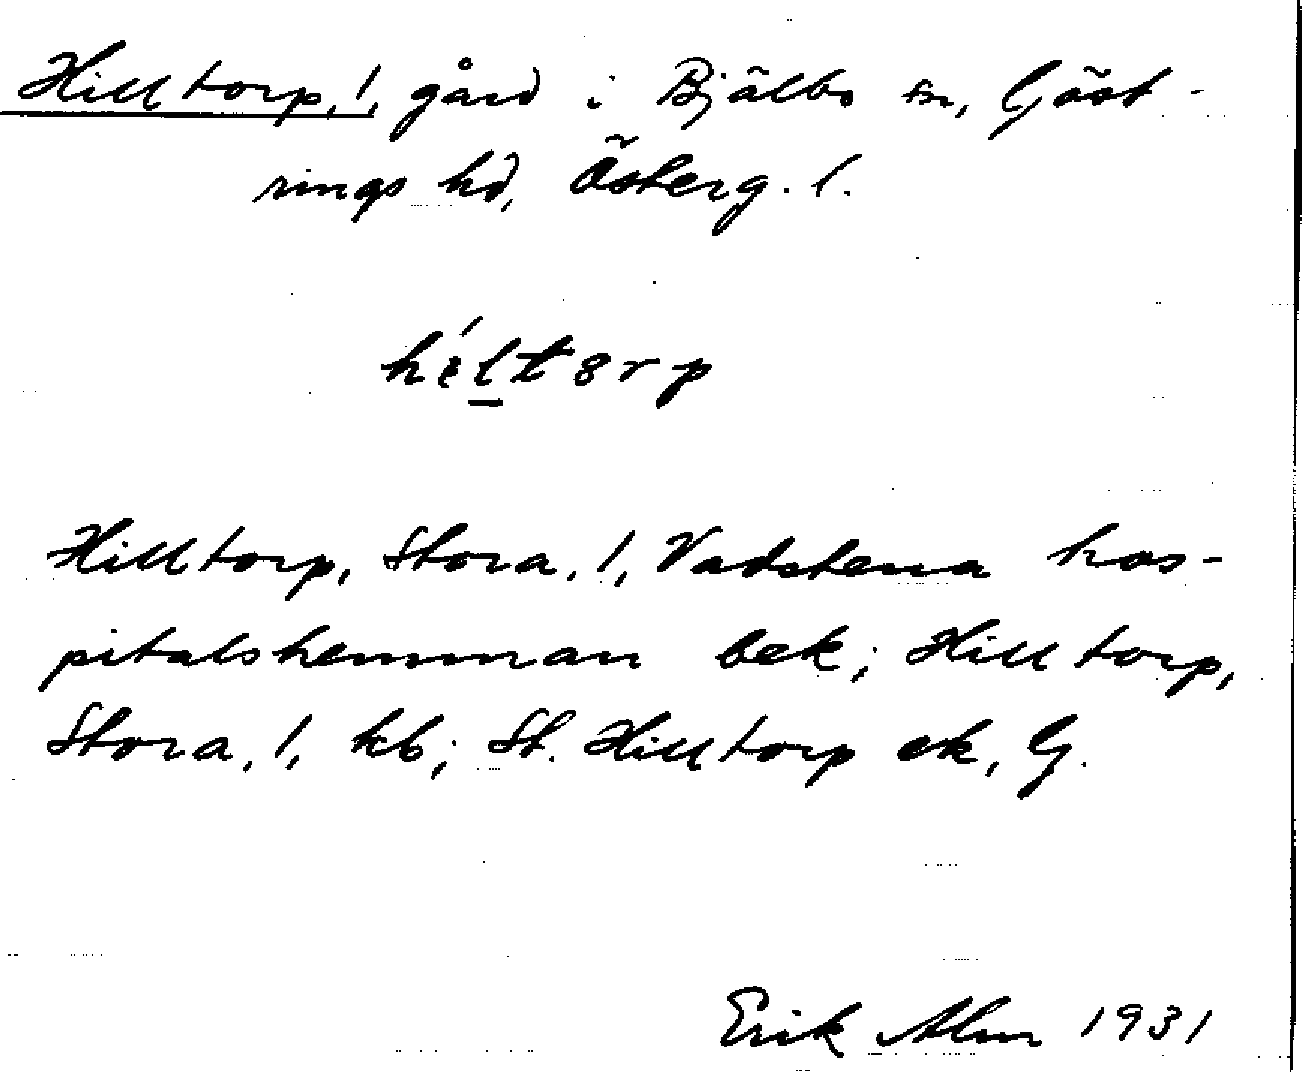 Hilltorp, 1, gård i Bjälbo sn, Göst-
rings hd, Österg. l.
héltorp
Hilltorp, Stora, 1, Vadstena hos-
pitalshemman bek; Hilltorp,
Stora, 1, kb; St. Hilltorp ek, G.
Erik Alm 1931